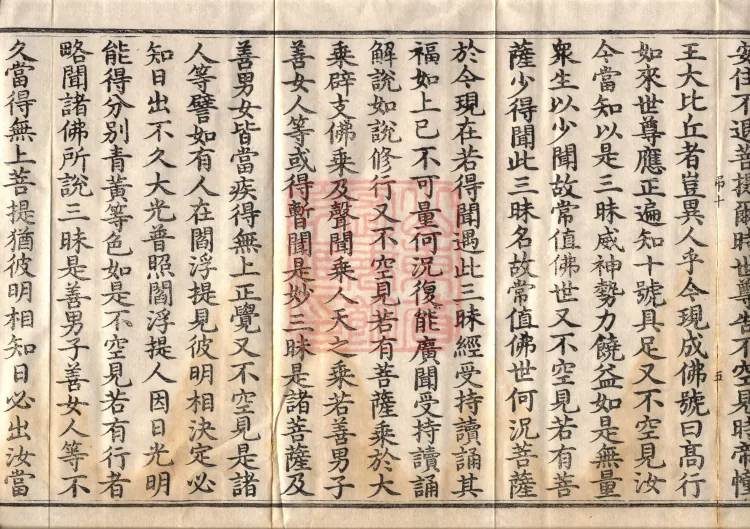 安住不退菩提爾時世尊告不空見時帝幢
王大比丘者豈異人乎今現成佛號曰高行
如來世尊應正遍知十號具足又不空見汝
今當知以是三昧威神勢力饒益如是無量
眾生以少聞故常值佛世又不空見若有菩
薩少得聞此三昧名故常值佛世何況菩薩
於今現在若得聞遇此三昧經受持讀誦其
福如上已不可量何況復能廣聞受持讀誦
解說如說修行又不空見若有菩薩乘於大
乘辟支佛乘及聲聞乘人天之乘若善男子
善女人等或得暫聞是妙三昧是諸菩薩及
善男女皆當疾得無上正覺又不空見是諸
人等譬如有人在閻浮提見彼明相決定必
知日出不久大光普照閻浮提人因日光明
能得分別青黃等色如是不空見若有行者
略聞諸佛所說三昧是善男子善女人等不
久當得無上菩提猶彼明相知日必出汝當